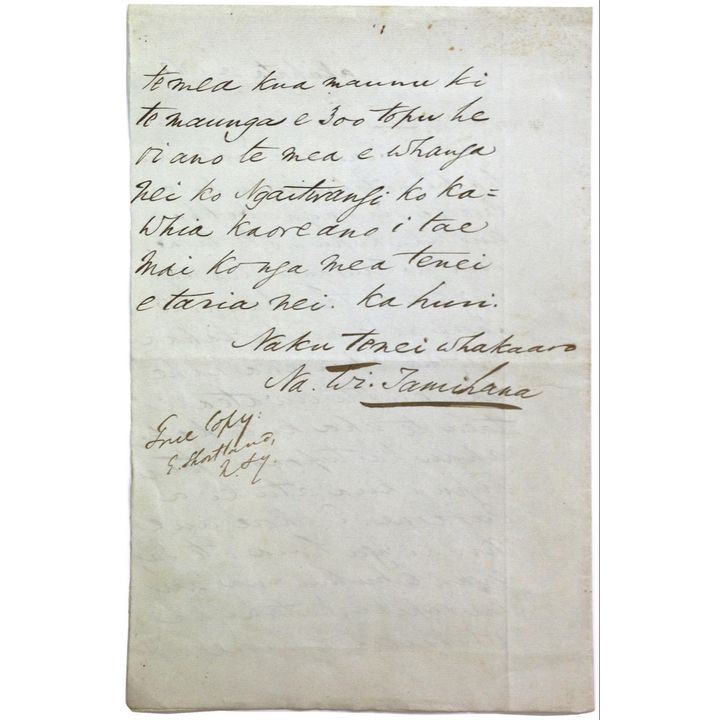 te mea kua maunu ki
te maunga e 300 topu he
oi ano te mea e whanga
nei ko Ngaitirangi ko ka=
whia kaore ano i tae
mai ko nga mea tenei
e taria nei. ka huri.
Naku tenei whakaaro
Na. Wi. Tamihana
True Copy:
E. Shortland,
N. Sy.